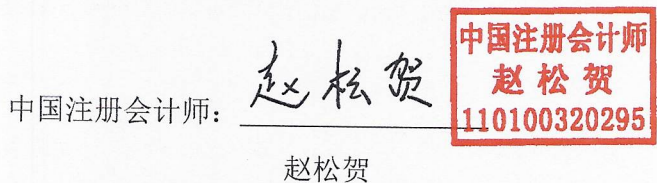 中国注册会计师：赵松贺
中国注册会计师
赵松贺
110100320295
赵松贺